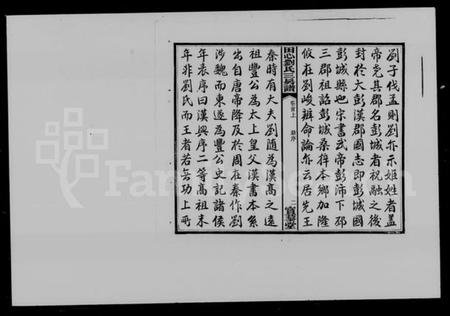 劉子伐孟則劉亦示姬姓者蓋
帝堯其郡名彭城者祝融之後
封於大彭漢郡國志即彭城國
彭城縣也宋書武帝彭沛下邳
三郡祖詔彭城桑梓本鄉加隆
攸在劉峻辨命論亦云居先王
田心劉氏三房譜
卷首上
秦時有大夫劉隨為漢高之遠
祖豐公為太上皇父漢書本系
出自唐帝降及於周在秦作劉
涉魏而東遂為豐公史記諸侯
年表序曰漢興序二等高祖末
年非劉氏而王者若無功上所